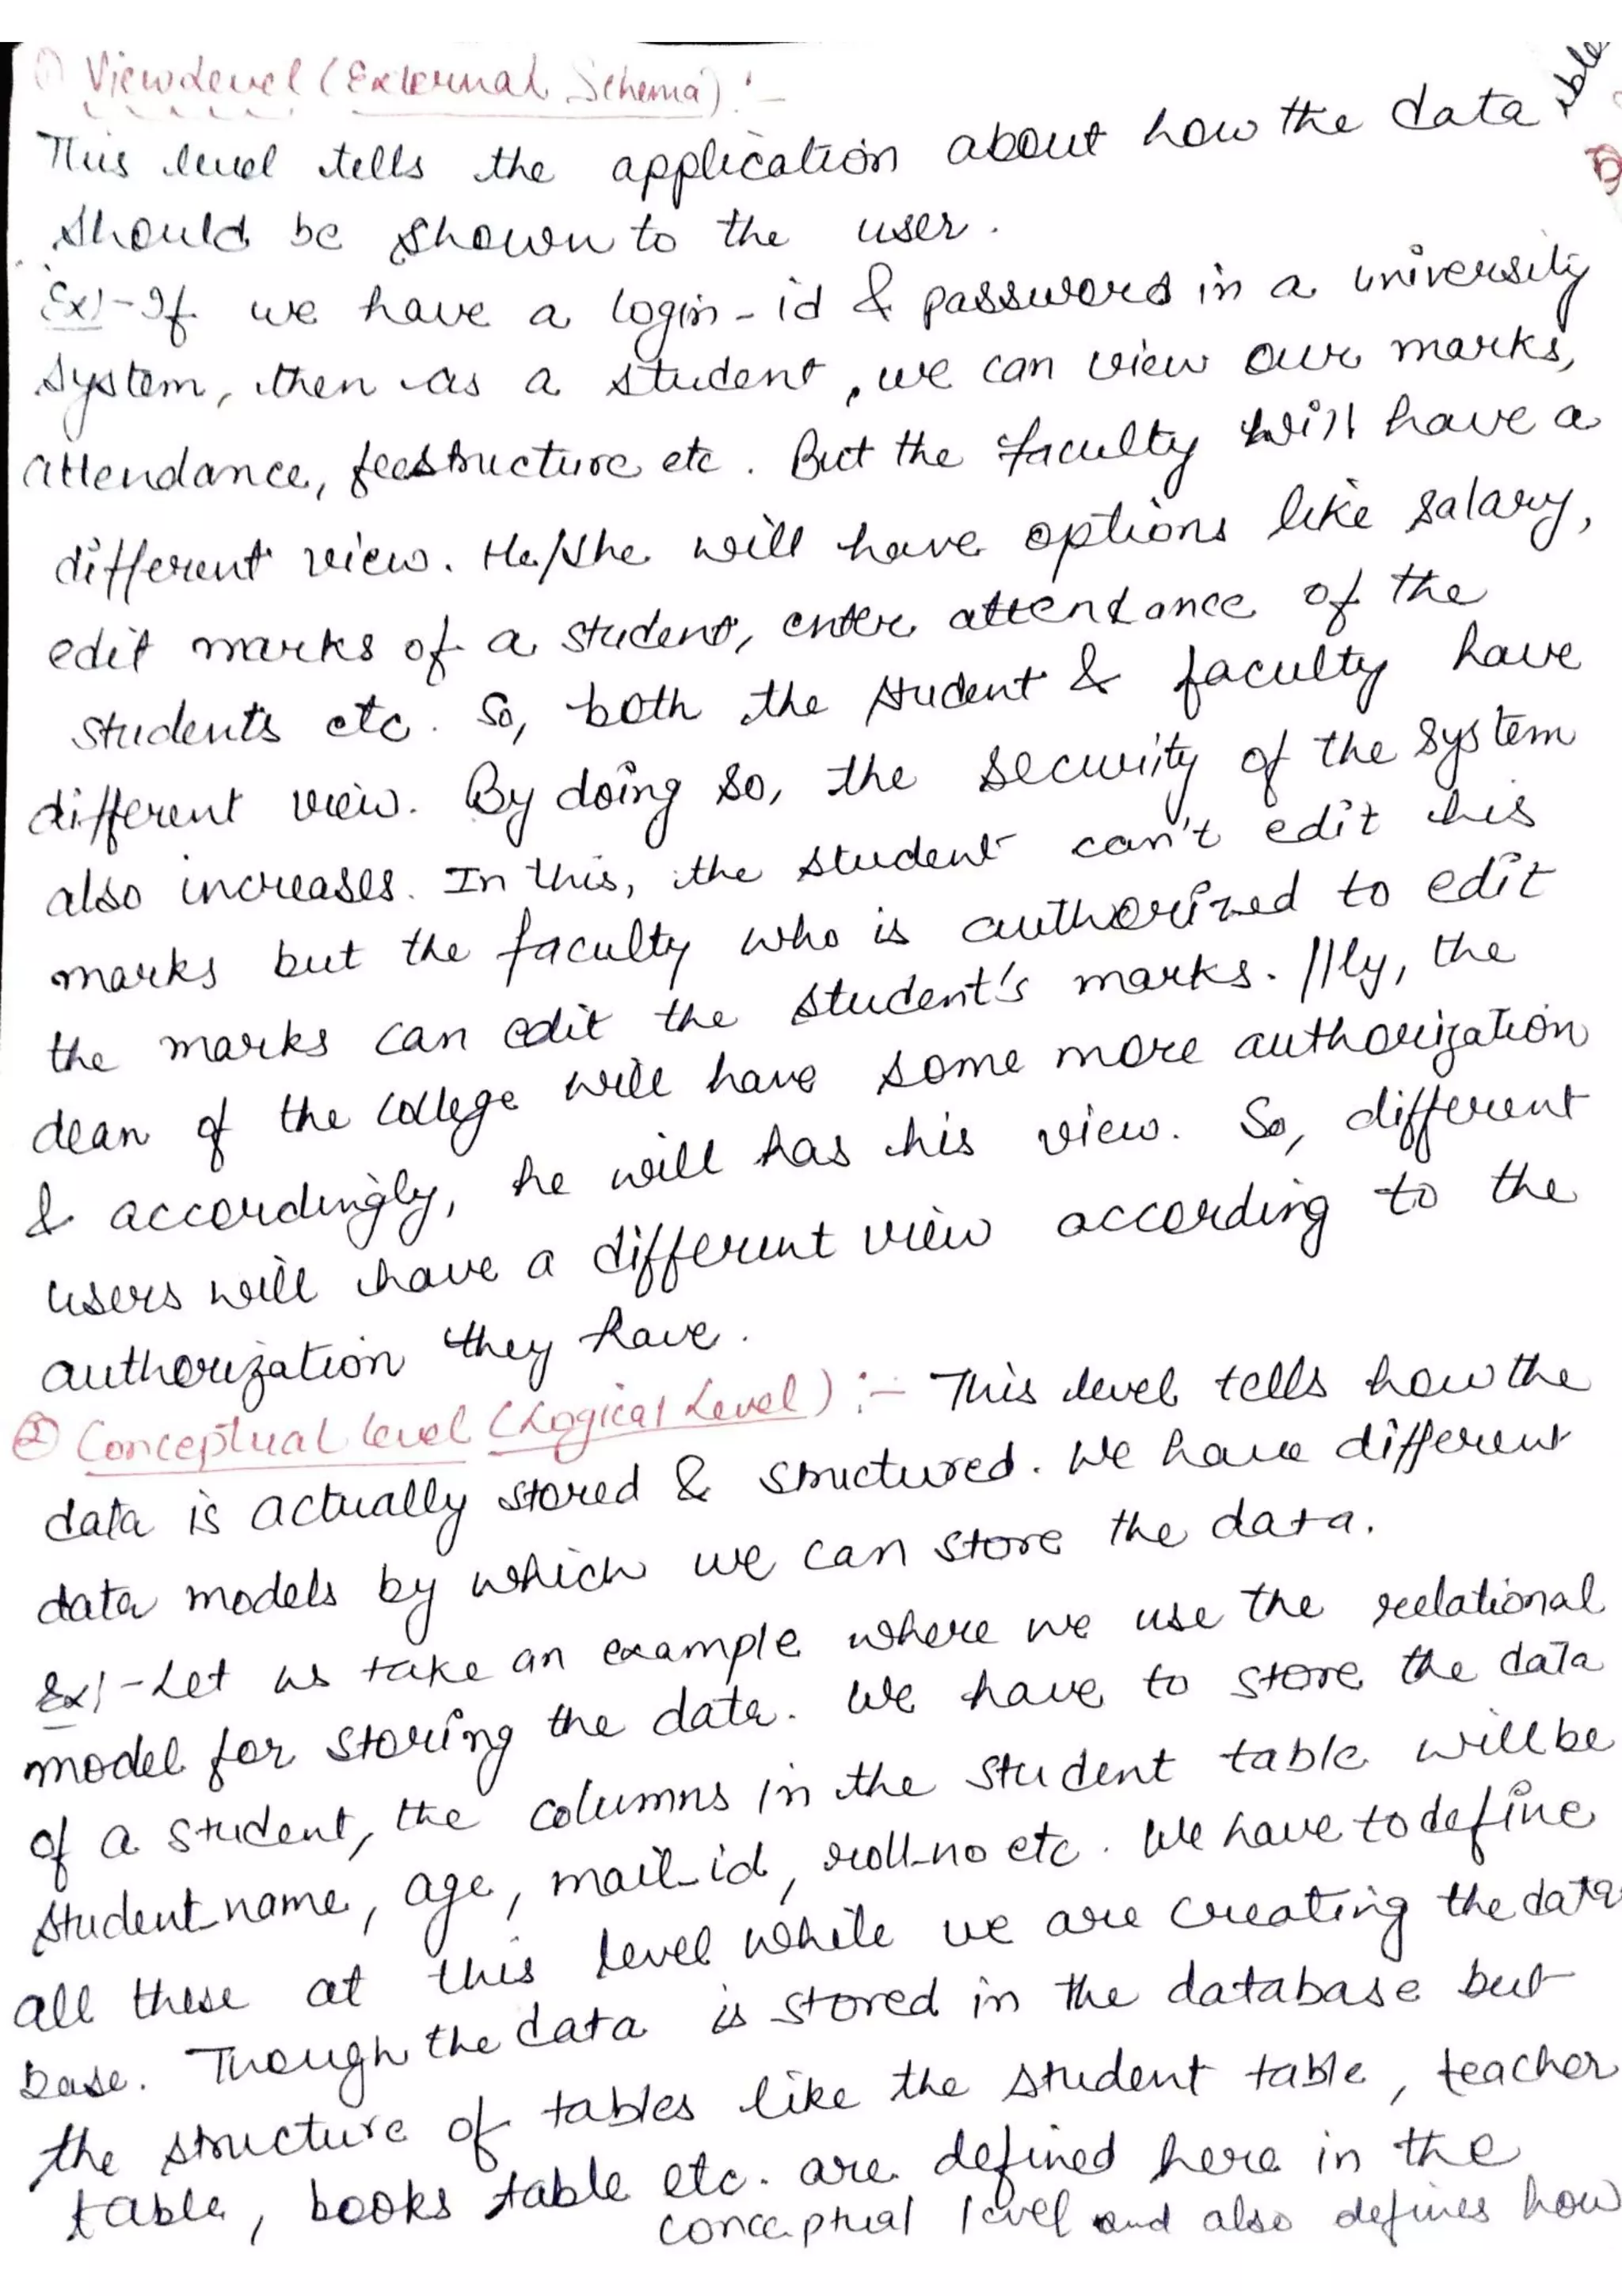 ① View level (External Schema) :-
This level tells the application about how the data
should be shown to the user.
Ex)- If we have a login-id & password in a university
system, then as a student, we can view our marks,
attendance, feestructure etc. But the faculty will have a
different view. He/she will have options like salary,
edit marks of a student, enter attendance of the
students etc. So, both the student & faculty have
different view. By doing so, the security of the system
also increases. In this, the student can't edit his
marks but the faculty who is authorized to edit
the marks can edit the student's marks. ||ly, the
dean of the college will have some more authorization
& accordingly, he will has his view. So, different
users will have a different view according to the
authorization they have.
② Conceptual level (Logical Level) :- This level tells how the
data is actually stored & structured. We have different
data models by which we can store the data.
Ex)- Let us take an example where we use the relational
model for storing the data. We have to store the data
of a student, the columns in the student table will be
student_name, age, mail_id, roll_no etc. We have to define
all these at this level while we are creating the data
base. Though the data is stored in the database but
the structure of tables like the student table, teacher
table, books table etc. are defined here in the
conceptual level and also defines how